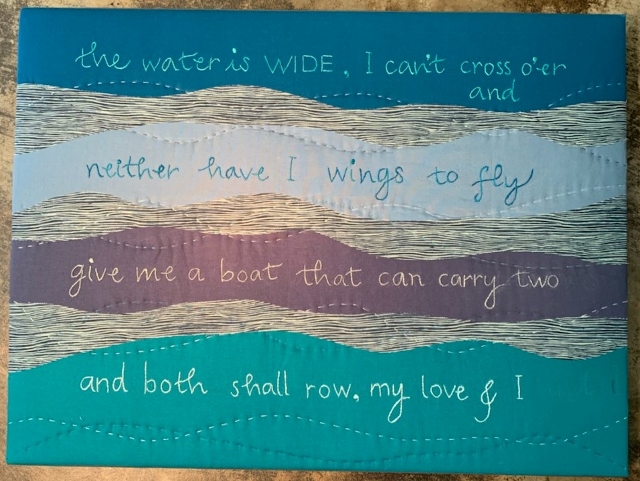 the water is WIDE, I can't cross o'er
and
neither have I wings to fly
give me a boat that can carry two
and both shall row, my love & I